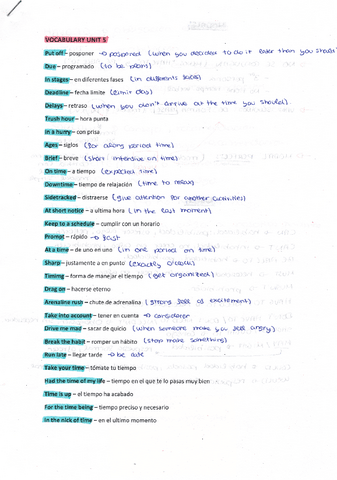 VOCABULARY UNIT 5
Put off – posponer → posponed (when you decided to do it later than you should
Due – programado (to be
In stages – en diferentes fases (in differents
Deadline – fecha límite (limit day)
Delays – retraso (when you don't arrive at the time you should).
Trush hour – hora punta
In a hurry – con prisa
Ages – siglos (for along period time)
Brief – breve (short intensive on time)
On time – a tiempo (expected time)
Downtime – tiempo de relajación (time to relax)
Sidetracked – distraerse (give attention for another activities)
At short notice – a ultima hora (in the last moment)
Keep to a schedule – cumplir con un horario
Prompt – rápido → fast
At a time – de uno en uno (in one period on time)
Sharp – justamente a en punto (exactly o'clock)
Timimg – forma de manejar el tiempo (get organized)
Drag on – hacerse eterno
Arenalina rush – chute de adrenalina (strong fell of excitement)
Take into account – tener en cuenta → considerer
Drive me mad – sacar de quicio (when someone make you fell angry)
Break the habit – romper un hábito (stop make something)
Run late – llegar tarde → be late
Take your time – tómate tu tiempo
Had the time of my life – tiempo en el que te lo pasas muy bien
Time is up – el tiempo ha acabado
For the time being – tiempo preciso y necesario
In the nick of time – en el ultimo momento